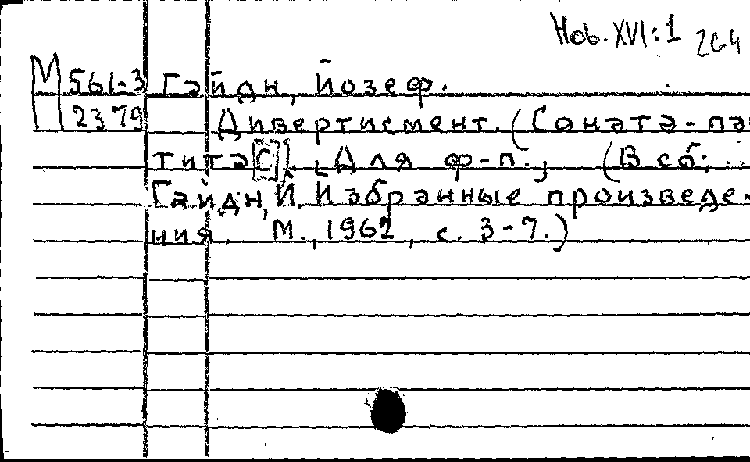 Hob. XVI:1 264
М 561-3 Гайдн, Йозеф.
2379 Дивертисмент. (Соната-пар-
тита [C]). [Для ф-п.] (В сб:
Гайдн, Й. Избранные произведе-
ния. М., 1962, с. 3-7.)